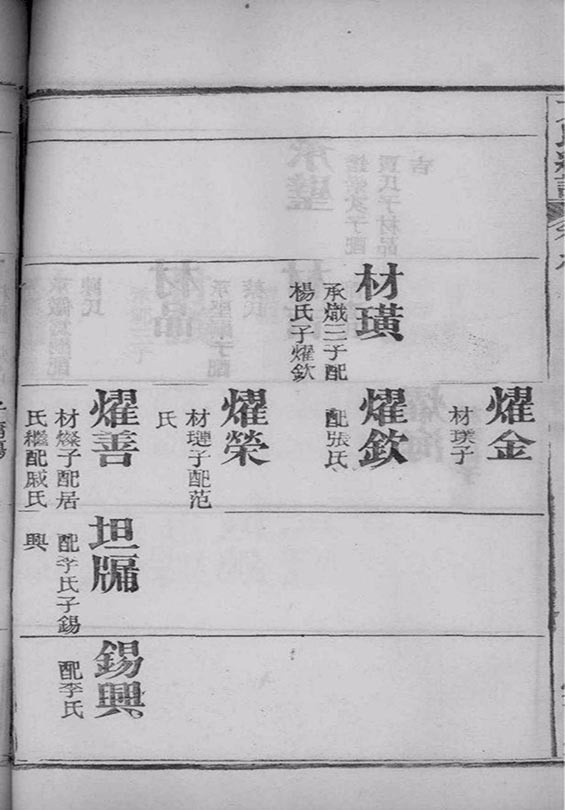 材璜
承熾三子配
楊氏子燿欽
燿金
材璞子
燿欽
配張氏
燿榮
材璉子配范
氏
燿善
材燦子配居
氏繼配戚氏
坦牖
配李氏子錫
興
錫興
配李氏